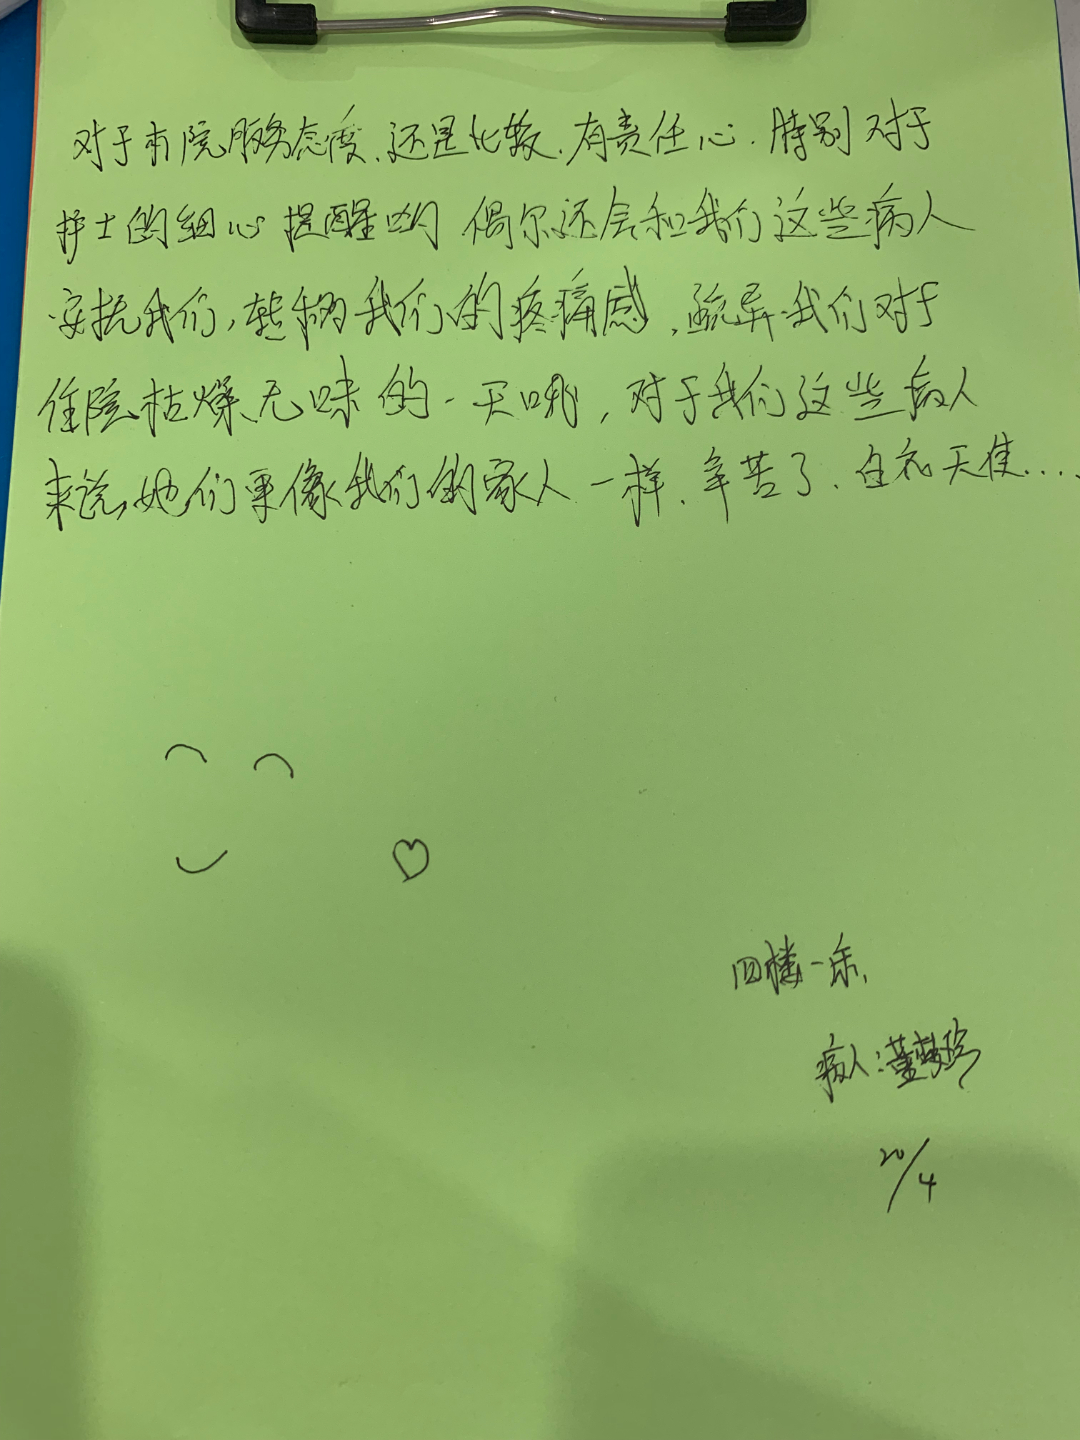 对于本院服务态度、还是比较、有责任心、特别对于
护士的细心提醒哟 偶尔还会和我们这些病人
安抚我们，转移我们的疼痛感、疏导我们对于
住院枯燥无味的一天哦，对于我们这些病人
来说，她们更像我们的家人一样、辛苦了、白衣天使....
四楼一
病人：董梦
20/4